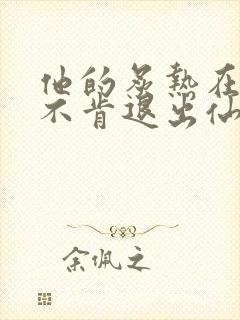 他的炙热在
不肯退出仙
余佩之